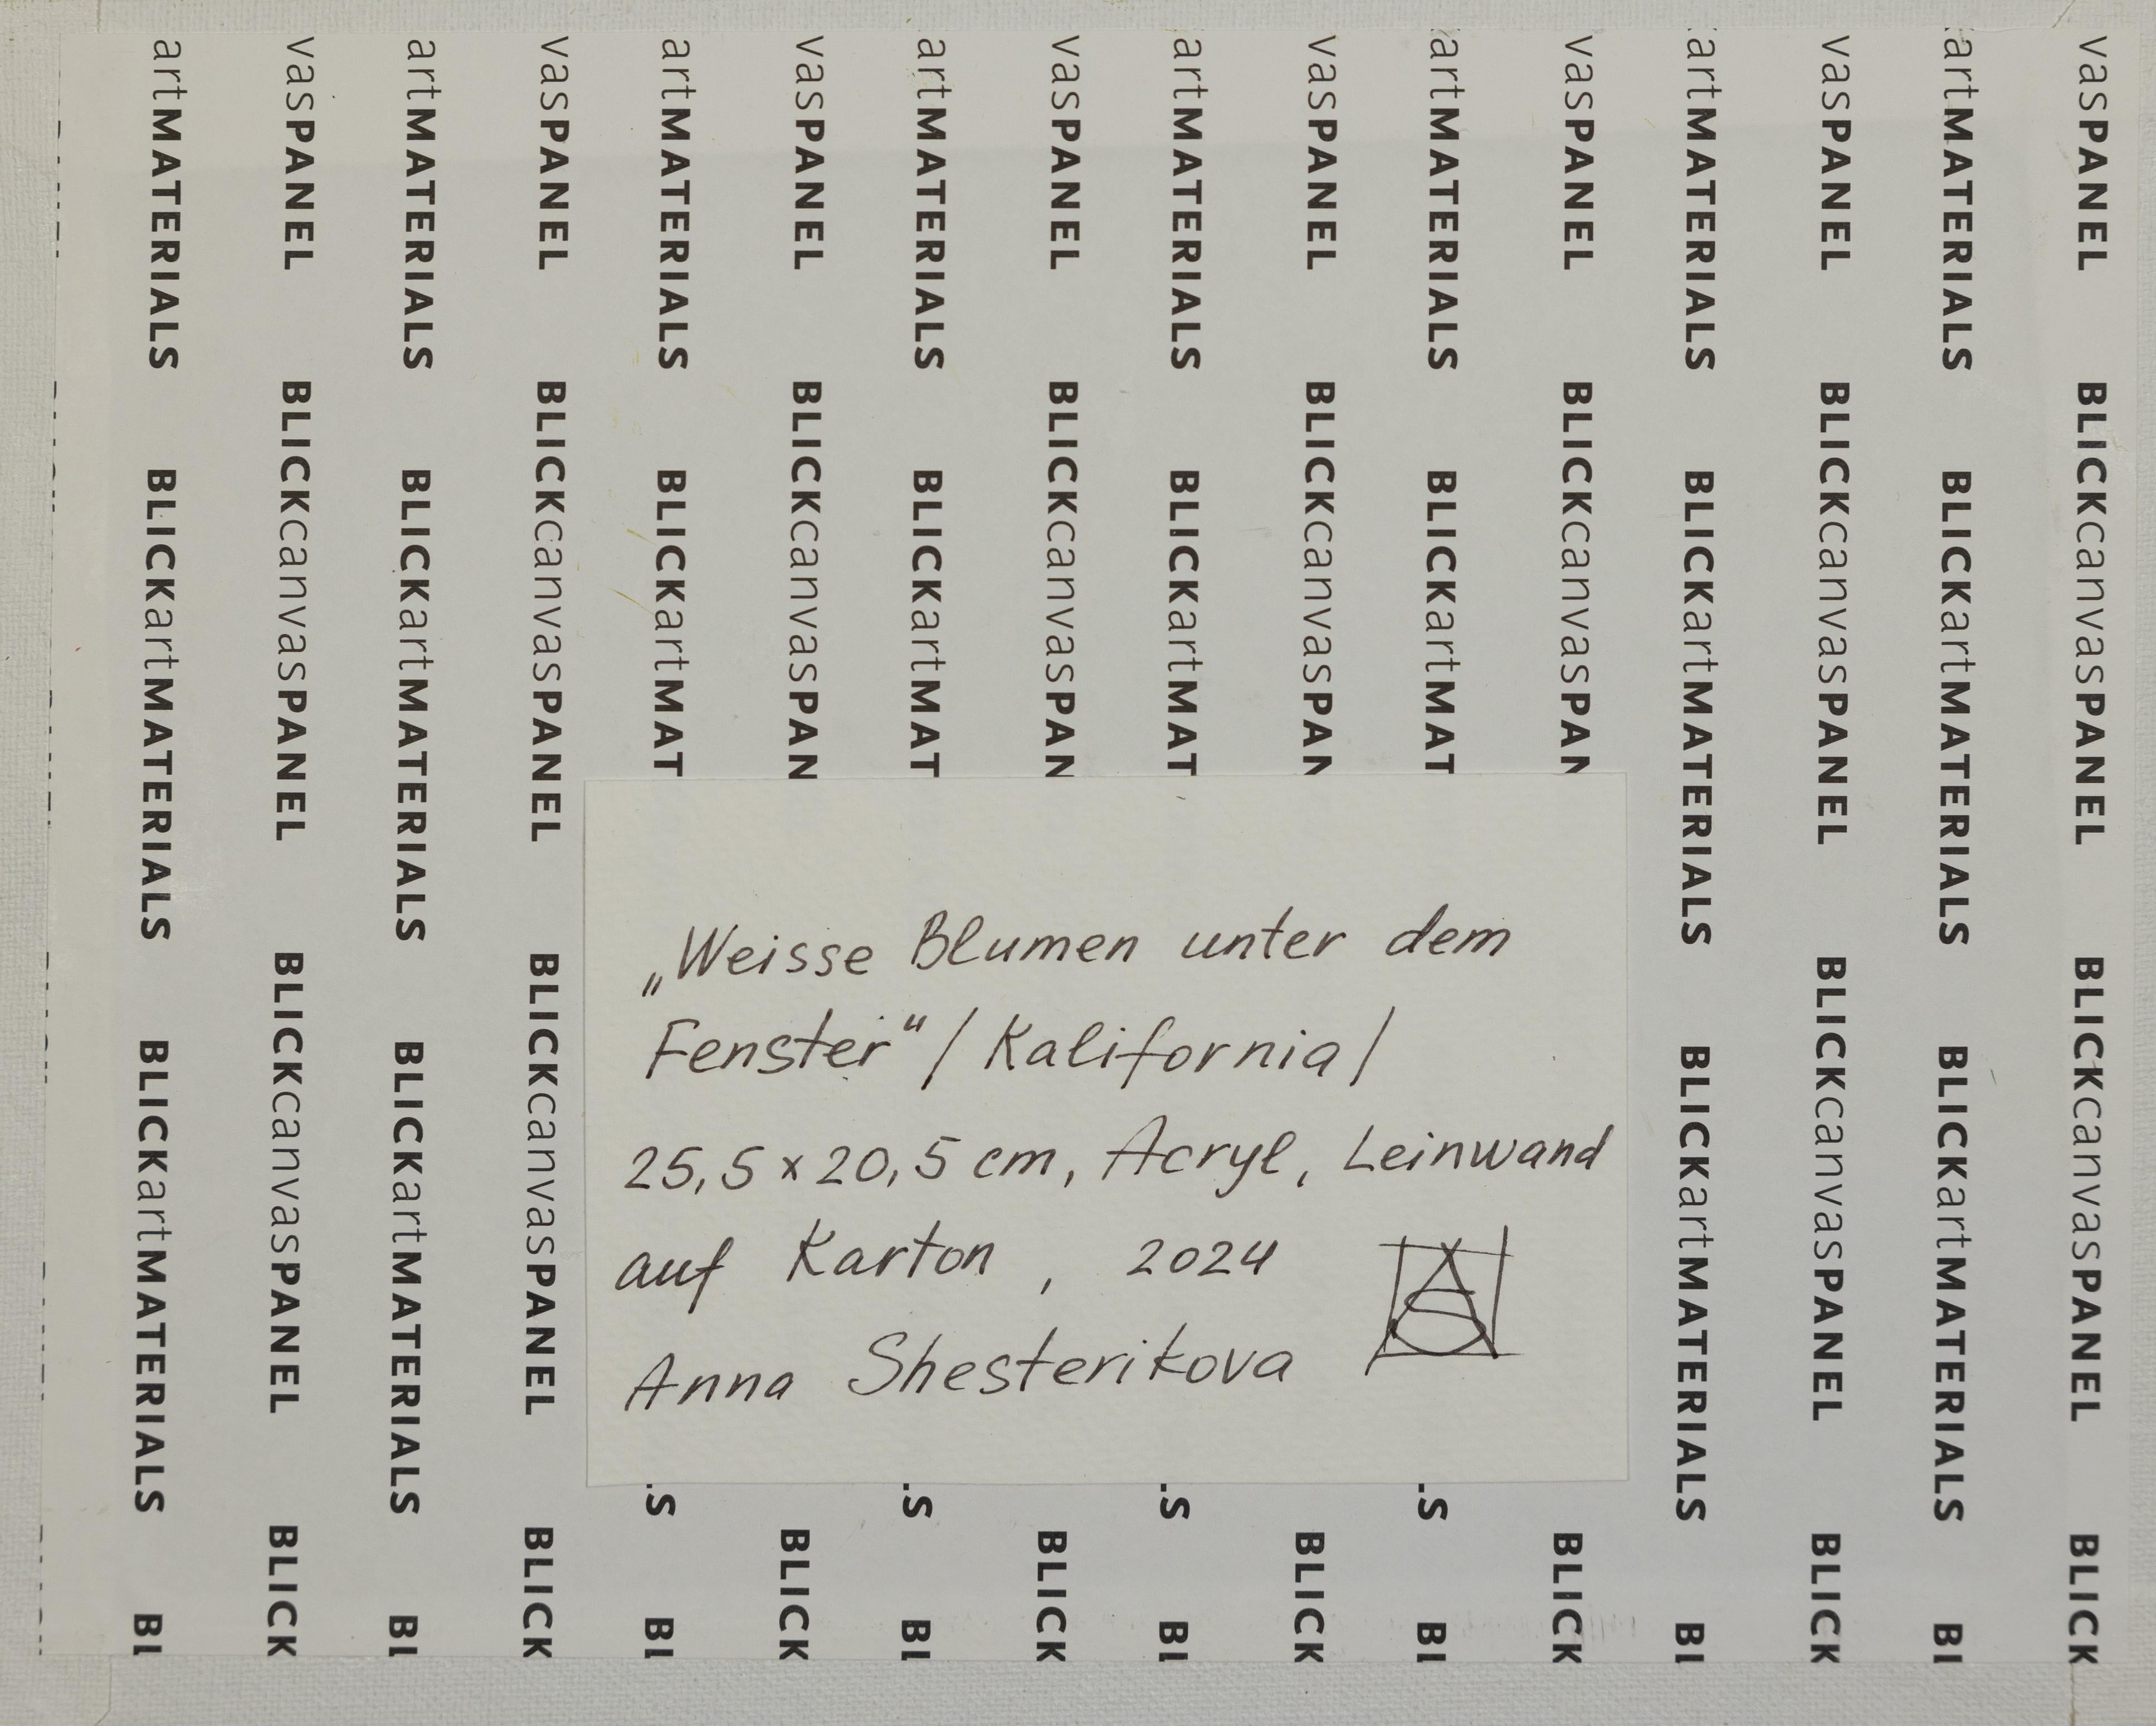 artMATERIALS BLICKartMATERIALS BLICKartMATERIALS BL
vasPANEL BLICKcanvasPANEL BLICKcanvasPANEL BLICK
artMATERIALS BLICKartMATERIALS BLICKartMATERIALS BL
vasPANEL BLICKcanvasPANEL BLICKcanvasPANEL BLICK
artMATERIALS BLICKartMAT S BL
vasPANEL BLICKcanvasPAN BLICK
artMATERIALS BLICKartMAT S BL
vasPANEL BLICKcanvasPAN BLICK
artMATERIALS BLICKartMAT S BL
vasPANEL BLICKcanvasPAN BLICK
artMATERIALS BLICKartMAT S BL
vasPANEL BLICKcanvasPAN BLICK
artMATERIALS BLICKartMATERIALS BLICKartMATERIALS BL
vasPANEL BLICKcanvasPANEL BLICKcanvasPANEL BLICK
artMATERIALS BLICKartMATERIALS BLICKartMATERIALS BL
vasPANEL BLICKcanvasPANEL BLICKcanvasPANEL BLICK
„Weisse Blumen unter dem
Fenster“ / Kalifornia /
25,5 x 20,5 cm, Acryl, Leinwand
auf Karton, 2024
Anna Shesterikova